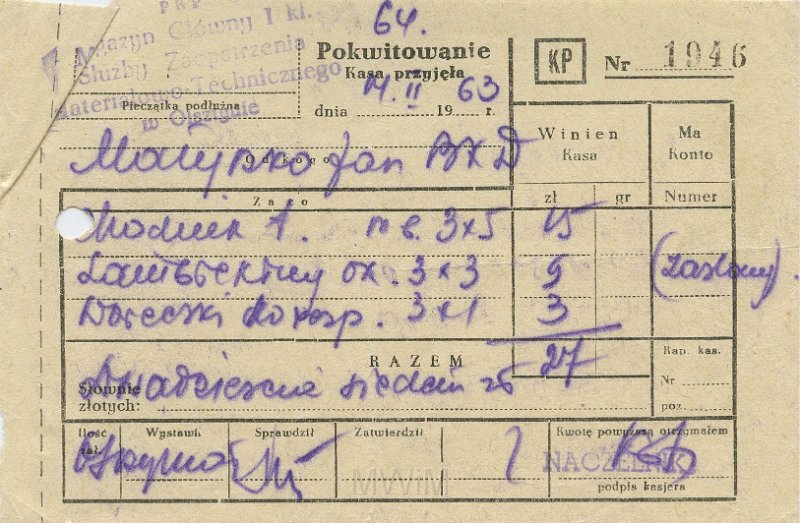 PKP
Magazyn Główny I kl.
Służby Zaopatrzenia
Materiałowo-Technicznego
w Olsztynie
Pieczątka podłużna
64.
Pokwitowanie
Kasa przyjęła
dnia 14.II 1963 r.
KP Nr 1946
Od kogo
Jan
Winien Kasa
Ma Konto
Za co
zł gr
Numer
3x5 15
Lambrekiny ok. 3x3 9 (zasłony).
Woreczki do 3x1 3
RAZEM 27
Rap. kas.
Nr
poz.
Słownie złotych: dwadzieścia siedem zł
Ilość zał.
Wystawił
Sprawdził
Zatwierdził
Kwotę powyższą otrzymałem
NACZELNIK
podpis kasjera
MWiM